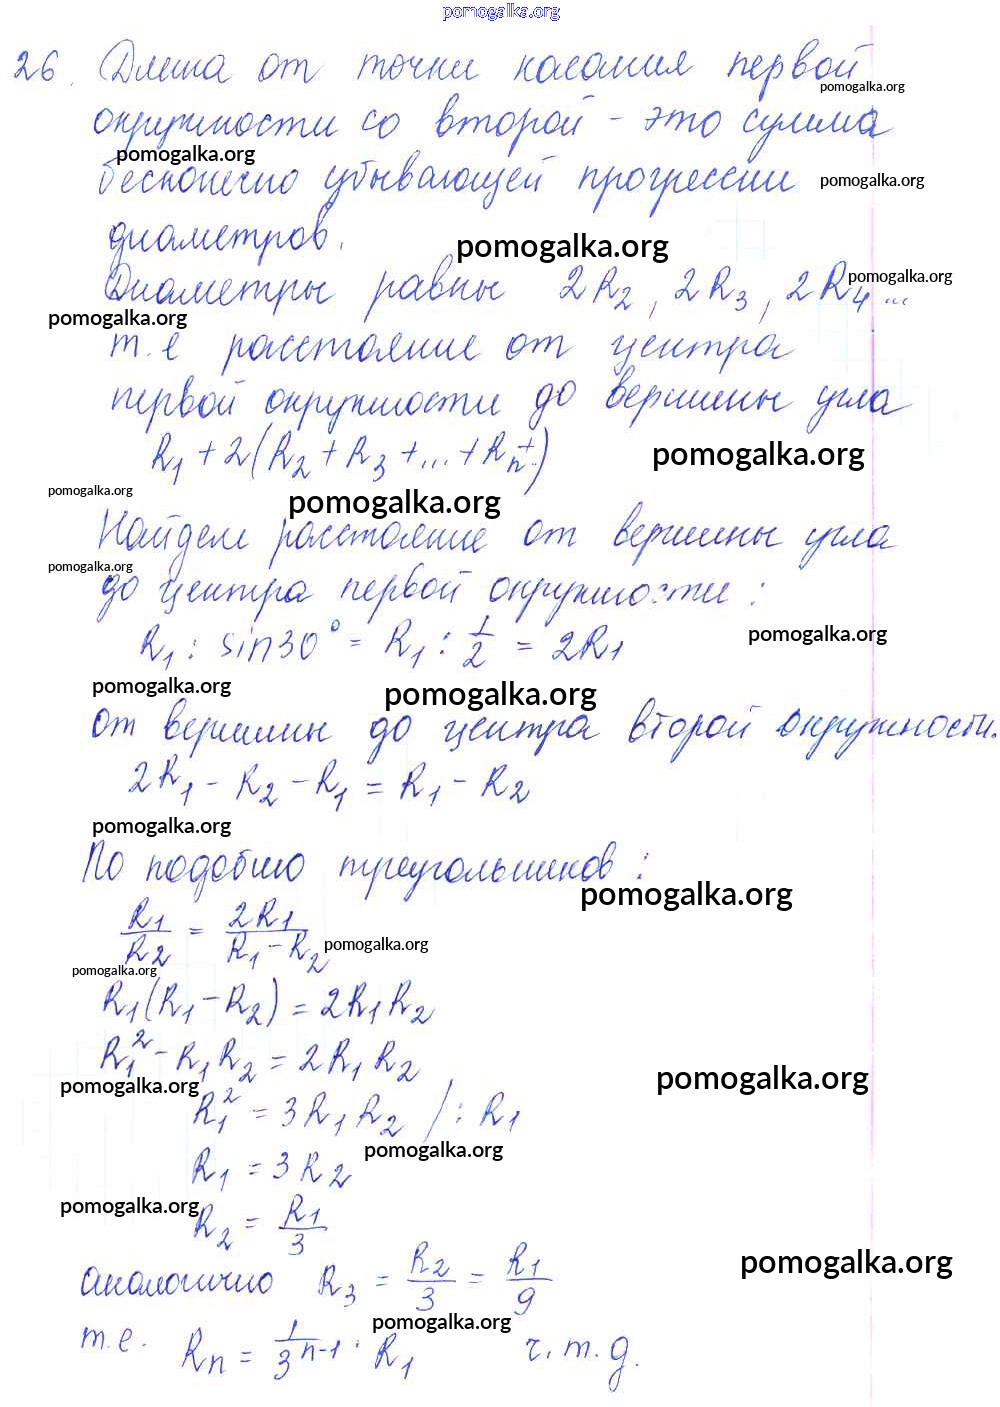 pomogalka.org
26. Длина от точки касания первой
pomogalka.org
окружности со второй - это сумма
pomogalka.org
бесконечно убывающей прогрессии
pomogalka.org
диаметров.
pomogalka.org
Диаметры равны 2R₂, 2R₃, 2R₄...
pomogalka.org
pomogalka.org
т.е расстояние от центра
первой окружности до вершины угла
R₁ + 2(R₂ + R₃ + ... + Rₙ + ..)
pomogalka.org
pomogalka.org
pomogalka.org
Найдем расстояние от вершины угла
pomogalka.org
до центра первой окружности:
R₁ : sin30° = R₁ : 1/2 = 2R₁
pomogalka.org
pomogalka.org
pomogalka.org
от вершины до центра второй окружности.
2R₁ - R₂ - R₁ = R₁ - R₂
pomogalka.org
По подобию треугольников:
pomogalka.org
R₁/R₂ = 2R₁/(R₁ - R₂)
pomogalka.org
pomogalka.org
R₁(R₁ - R₂) = 2R₁R₂
R₁² - R₁R₂ = 2R₁R₂
pomogalka.org
pomogalka.org
R₁² = 3R₁R₂ / : R₁
pomogalka.org
R₁ = 3R₂
pomogalka.org
R₂ = R₁/3
pomogalka.org
аналогично R₃ = R₂/3 = R₁/9
pomogalka.org
т.е. Rₙ = 1/3ⁿ⁻¹ · R₁ ч.т.д.